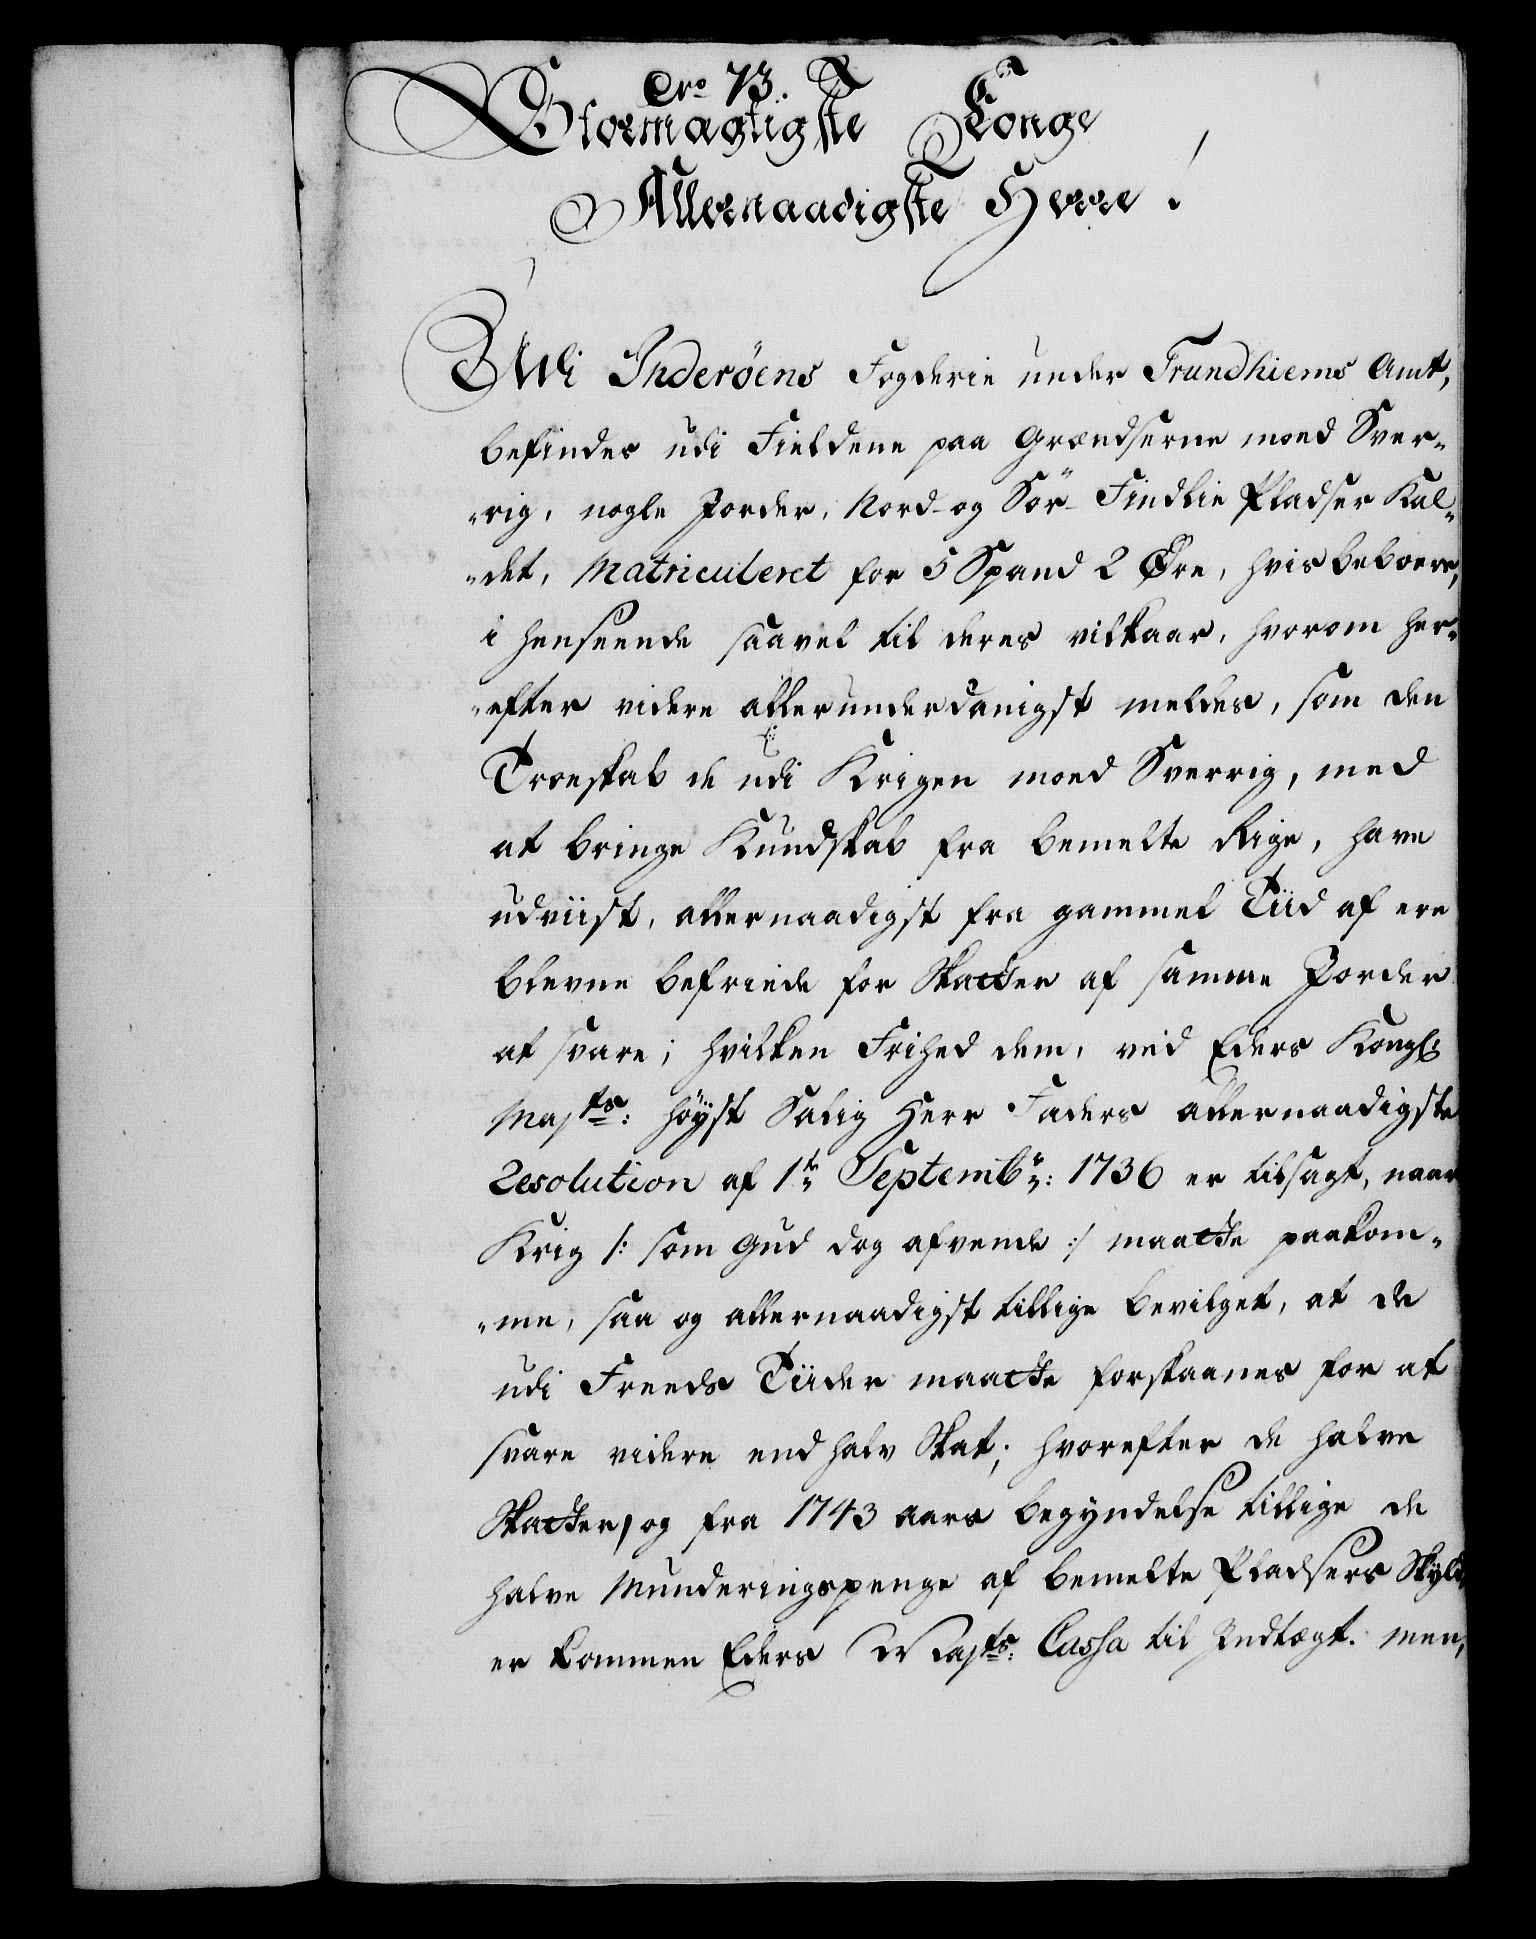 Nro 73.
Stormægtigste Konge
Allernaadigste Herre!
Udi Inderöens Fogderie under Trundhiems Amt,
befindes udi Fieldene paa Grændserne moed Sver-
-rig, nogle Jorder, Nord- og Sör- Findlie Pladser Kal-
-det, Matriculeret for 5 Spand 2 Øre, hvis beboere,
i henseende saavel til deres vilkaar, hvorom her-
-efter videre allerunderdanigst meldes, som den
Troeskab de udi Krigen moed Sverrig, med
at bringe Kundskab fra bemelte Rige, have
udviist, allernaadigst fra gammel Tiid af ere
blevne befriede for Skatter af samme Jorder
at svare; hvilken Frihed dem, ved Eders Kongl:
Majts: höyst Salig Herr Faders allernaadigste
Resolution af 1te Septembr: 1736 er tilsagt, naar
Krig /: som Gud dog afvende :/ maatte paakom-
-me, saa og allernaadigst tillige bevilget, at de
udi Freeds Tiider maatte forskaanes for at
svare videre end halv Skat; hvorefter de halve
Skatter, og fra 1743 aars begyndelse tillige de
halve Munderingspenge af bemelte Pladsers Skyld
er kommen Eders Majts: Cassa til Indtægt. men,